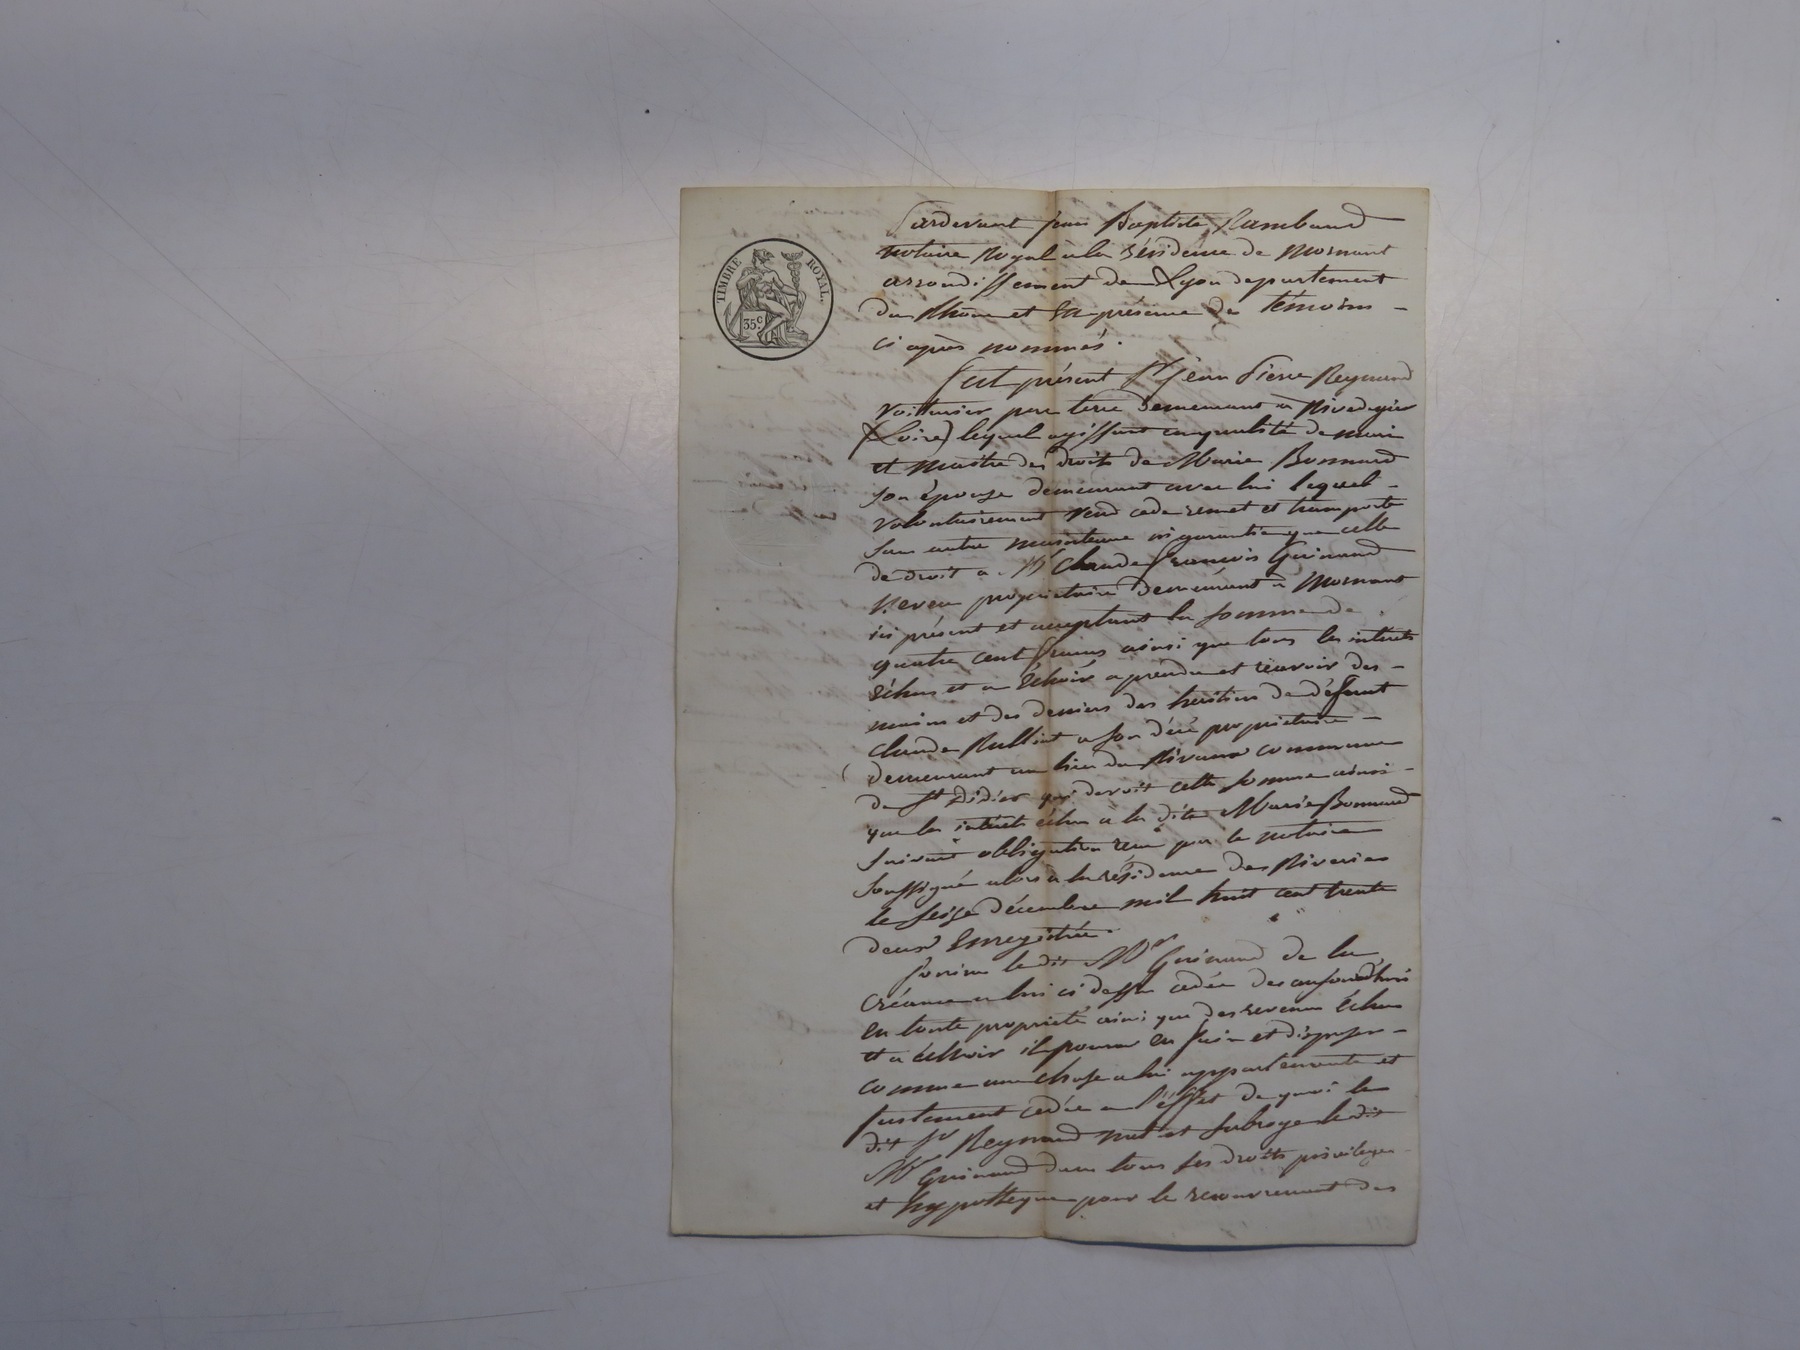 TIMBRE ROYAL.
35c.
Pardevant jean Baptiste Rambaud
notaire Royal à la résidence de Mornant
arrondissement de Lyon departement
du Rhône et En présence des témoins
ci après nommés.
fut présent Sr jean Pierre Reynaud
voiturier par terre demeurant à Rivedegier
(Loire) lequel agissant en qualité de mari
et maitre des droits de Marie Bonnard
son épouse demeurant avec lui lequel
volontairement vend cede remet et transporte
sans autre maintenue ni garantie que celle
de droit a Mr Claude François Guinand
Neveu propriétaire demeurant à Mornant
ici présent et acceptant la somme de
quatre cent francs ainsi que tous les intérêts
Echus et a Echoir a prendre et recevoir des
mains et des deniers des héritiers de deffunt
Claude a son décé propriétaire
demeurant au lieu du commune
de St Didier qui devoit cette somme ainsi
que les intérêts échus a la dite Marie Bonnard
suivant obligation reçue par le notaire
soussigné alors a la résidence des Riveries
le seize décembre mil huit cent trente
deux Enregistrée.
le dit Mr Guinand de la
Créance a lui ci dessu cedée des aujourdhui
En toute propriété ainsi que des revenus Echus
et a échoir il poura En juir et disposer
comme une chose a lui appartenante et
justement cedée a l'effet de quoi le
dit Sr Reynaud met et subroge le dit
Mr Guinand dans tous ses droits privileges
et hypotheque pour le recouvrement des